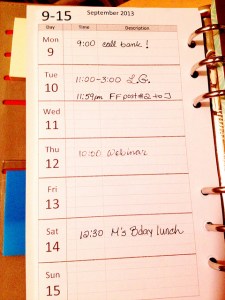 9-15 September 2013
Day Time Description
Mon 9 9:00 call bank!
Tue 10 11:00-3:00 L.G.
11:59pm FF post #2 to J
Wed 11
Thu 12 10:00 Webinar
Fri 13
Sat 14 12:30 M's Bday lunch
Sun 15